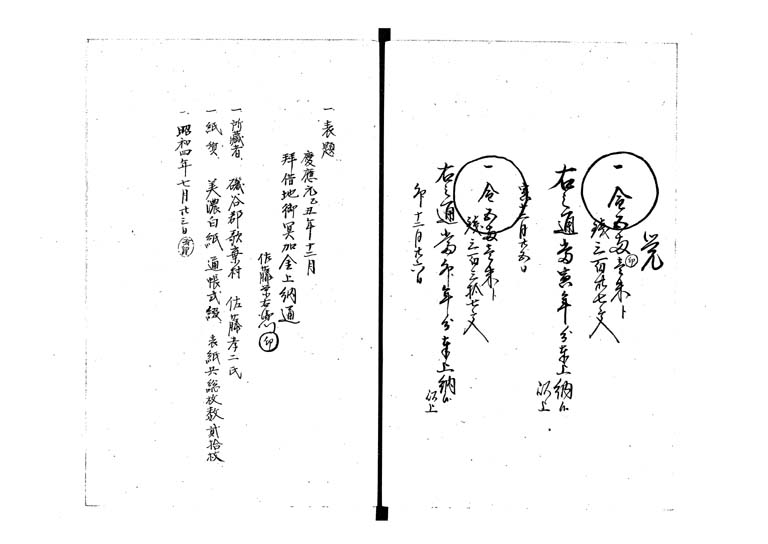 覚
一 金五両壱朱ト
銭三百廿七文
右之通当寅年分奉上納候
以上
寅十二月廿五日
一 金五両壱朱ト
銭三百三拾七文
右之通当卯年分奉上納候
以上
卯十二月廿六日
一 表題
慶應元乙丑年十二月
拝借地御冥加金上納通
佐藤栄右衛門 印
一 所蔵者、磯谷郡歌棄村 佐藤孝二氏
一 紙質、美濃白紙、通帳式綴、表紙共総枚数貳拾枚
一、昭和四年七月廿三日